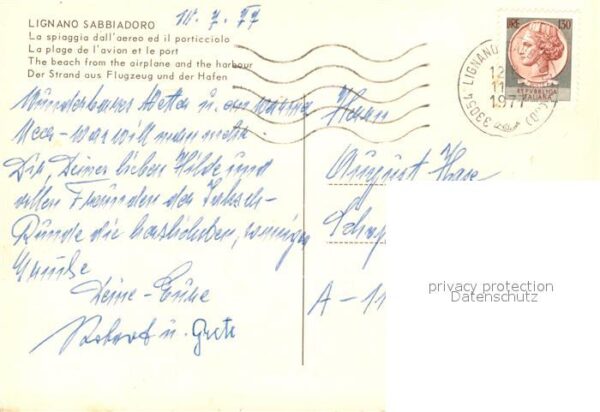 LIGNANO SABBIADORO
La spiaggia dall'aereo ed il porticciolo
La plage de l'avion et le port
The beach from the airplane and the harbour
Der Strand aus Flugzeug und der Hafen
10.7.77
Wunderbares Wetter u. ein warmes
Meer - was will man mehr
Dir, Deiner lieben Hilde und
allen Freunden der
Runde die herzlichsten, sonnigen
Grüße
Deine
Robert u. Grete
Herrn
August
A-11
33054 LIGNANO
12
11
1977
(UD)
LIRE 130
REPUBBLICA
ITALIANA
privacy protection
Datenschutz